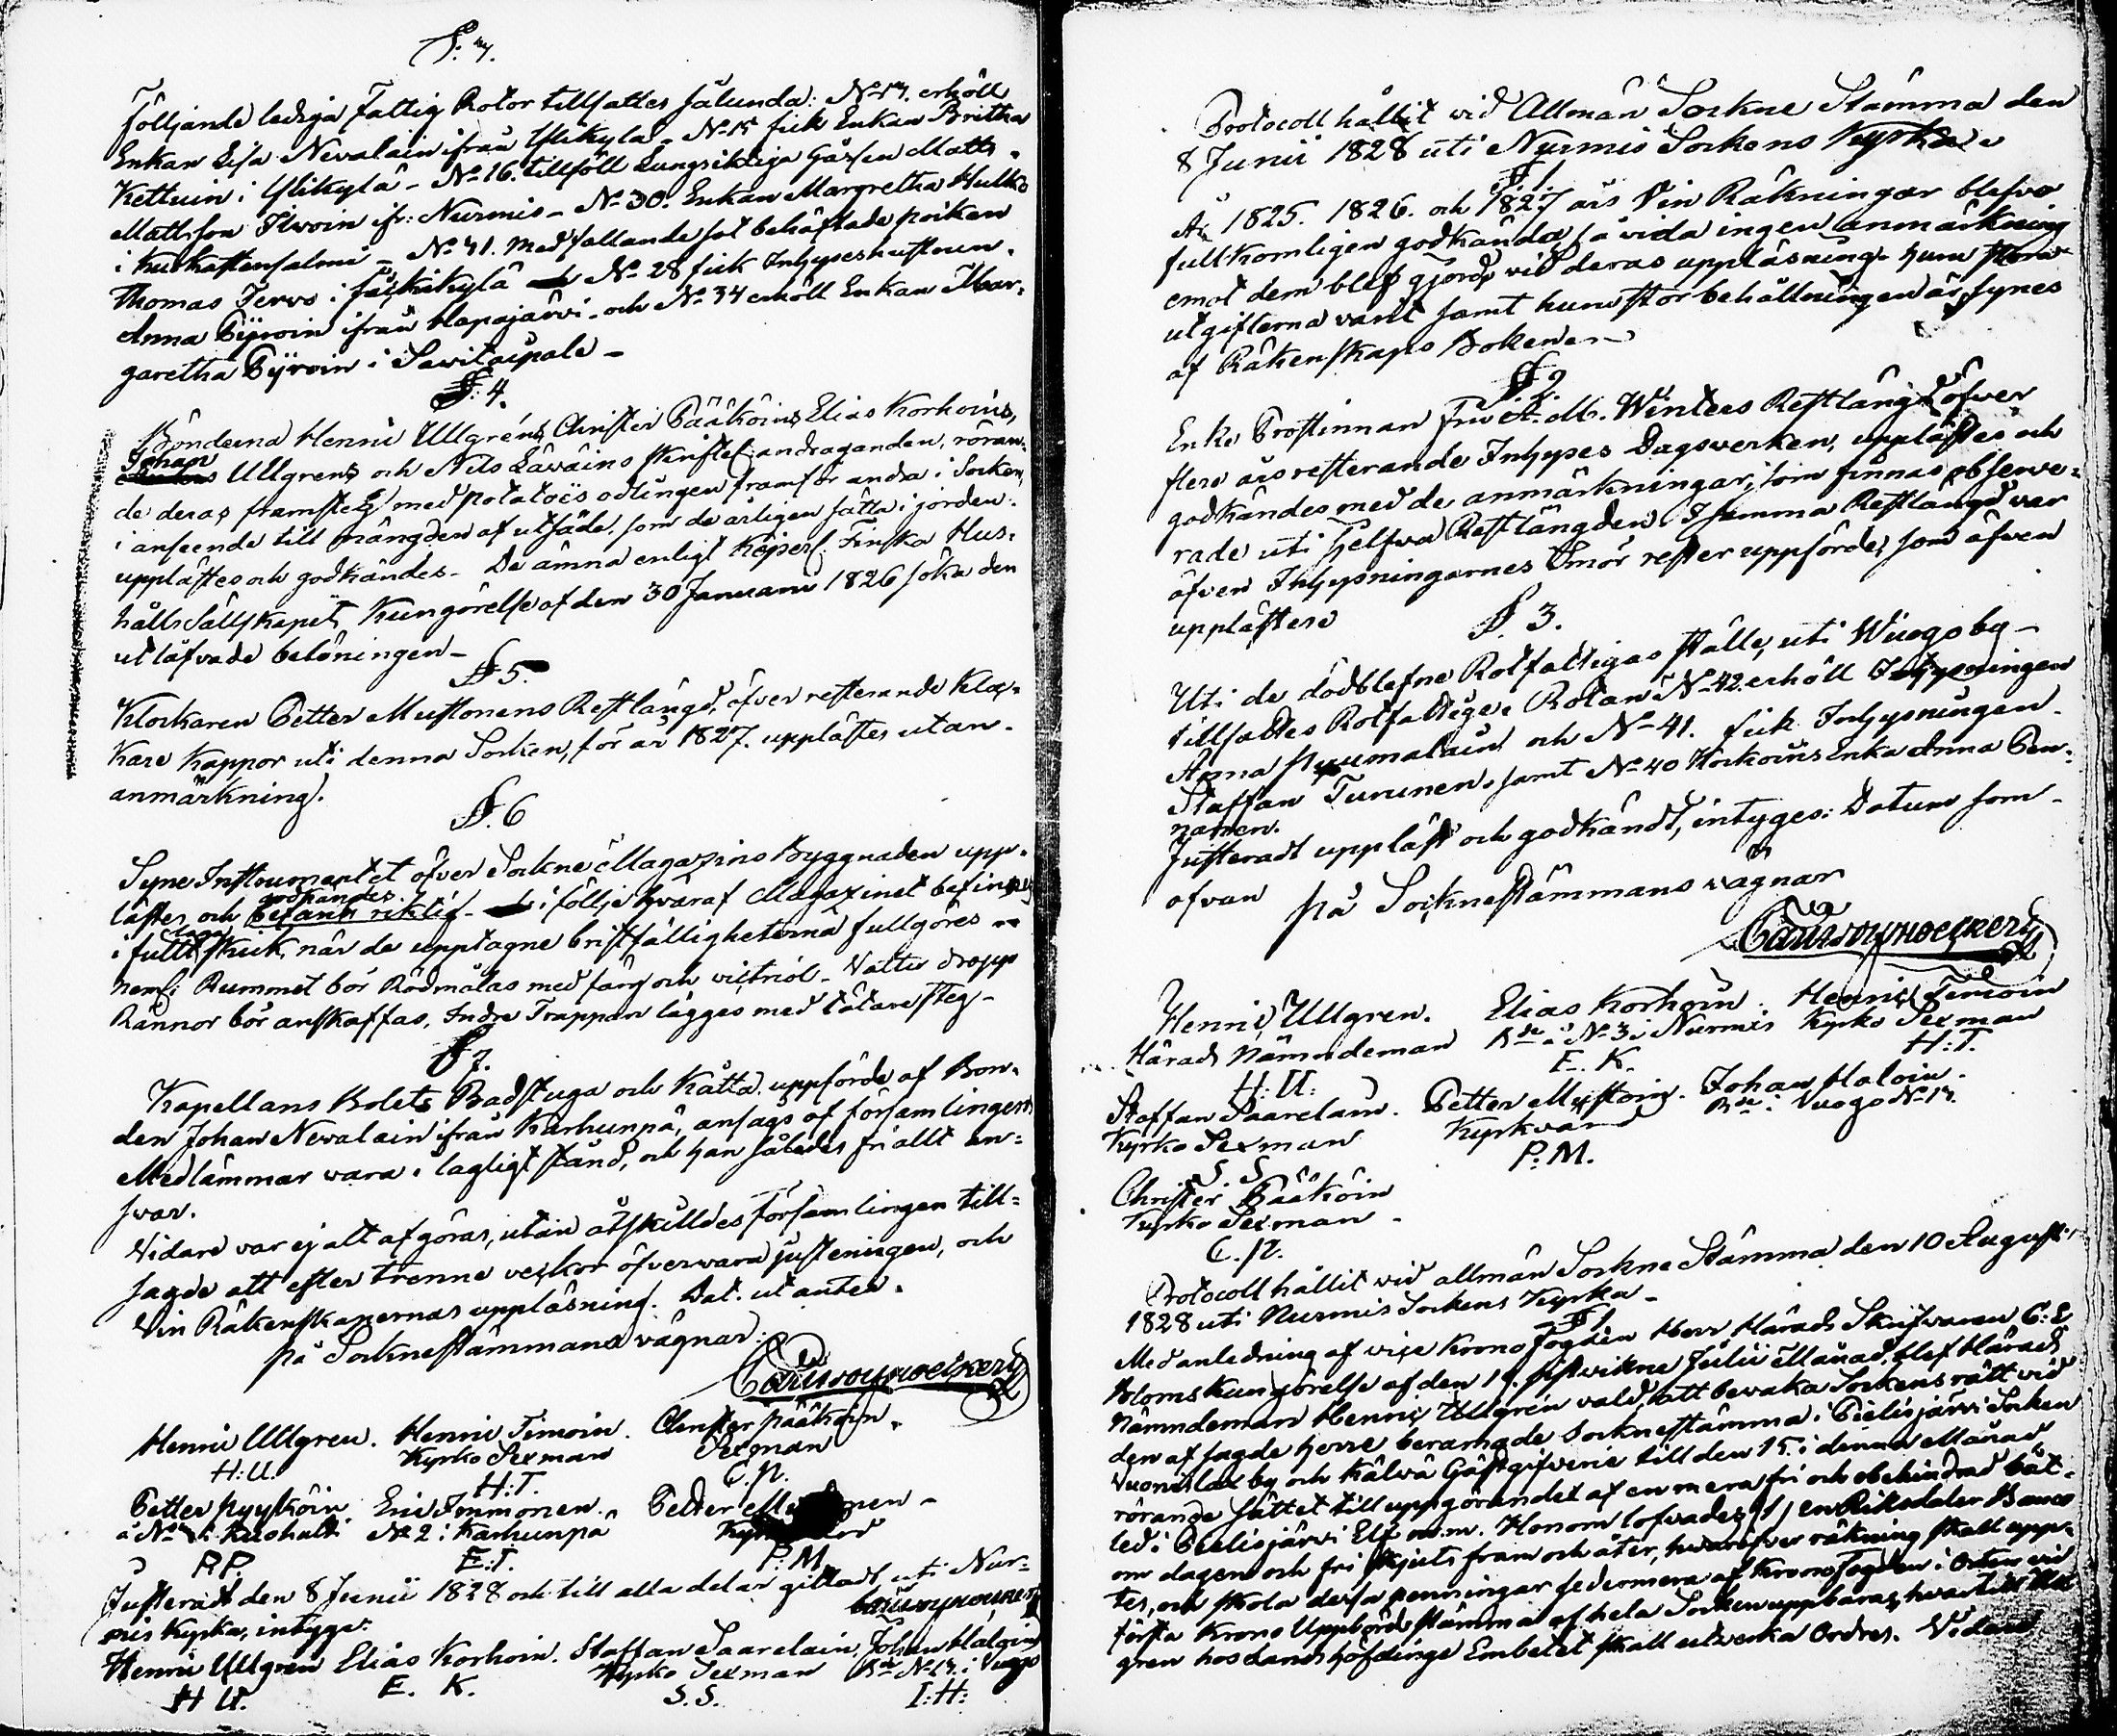 §. 3.
Följande lediga Fattig Rotor tillsattes sålunda: No 17. erhöll
Enkan Lisa Nevalain ifrån Ylikylä - No 15 fick Enkan Britha
Kettuin i Ylikylä - No 16. tillföll Lungsiktiga Gåssen Matts
Mattsson Ilvoin ifr: Nurmis - No 30. Enkan Margretha Hulk
i Kuokastensalmi - No 41. Med fallande sot behäftade poiken
Thomas Jervo i No 28 fick Inhyseshustrun
Anna Pyÿvoin ifrån Hapajärvi - och No 34 erhöll Enkan Mar-
garetha Pyÿvoin i Savitaipale -
§: 4.
Bönderna Henric Ullgréns, Christer Pääköins, Elias Korhoins,
Johan Ullgrens och Nils Läväins skriftel: andraganden, röran-
de deras framsteg med potatoës odlingen framför andra i Socken,
i anseende till mängden af utsäde, som de årligen sätta i jorden:
upplästes och godkändes - De ämna enligt Kejserl. Finska Hus-
hålls Sällskapets Kungörelse af den 30 Januarii 1826 söka den
utlåfvade belöningen -
§ 5.
Klockaren Petter Mustonens Restlängd, öfver resterande Kloc-
kare Kappor uti denna Socken, för år 1827. upplästes utan
anmärkning.
§. 6
Syne Instrumentet öfver Sockne Magazins Byggnaden upp-
godkändes
lästes och befans riktig - i följe hvaraf Magazinet befinnes
i fullt skick, när de upptagne bristfälligheterna fullgöres
neml: Rummet bör Rödmålas med färg och victriol - Vatten dropp
Rännor bör anskaffas, Indre Trappan lägges med tätare steg -
§ 7.
Kapellans Bolets Badstuga och Kåtta uppförde af Bon-
den Johan Nevalain ifrån Karhunpä, ansågs af församlingens
Medlämmar vara i lagligt stånd, och han således fri allt an-
svar.
Vidare var ej att afgöras, utan åtskilldes församlingen till-
sagde att efter trenne veckor öfvervara justeningen, och
Vin Räkenskapernas uppläsning. Dat. ut antea.
på Socknestämmans vägnar:
Henric Ullgren. Henric Timoin. Christer Pääköin.
H: U. Kyrko Sexman Sexman
H: T. C. P.
Petter Pyyköin Eric Immonen. Petter
å No i Kuohatti No 2 i Karhunpä
P. P. E: I. P: M.
Justerat den 8 Junii 1828 och till alla delar gilladt uti Nur-
mis Kyrka, intygar
Henric Ullgren Elias Korhoin. Staffan Saarelain, Johan Haloin
Kyrko Sexman Bde No 13. i Vuogo
H U. E. K. S. S. I: H:
Protocoll hållit vid Allmän Sockne Stämma den
8 Junii 1828 uti Nurmis Sockens Kyrka
§ 1.
År 1825. 1826. och 1827 års Vin Räkningar blefvo
fullkomligen godkända, så vida ingen anmärkning
emot dem blef gjord, vid deras uppläsning. huru stora
utgifterna varit samt huru stor behållningen är, synes
af Räkenskaps Boken
§ 2.
Enke Prostinnan Fru A. M. Winters Restlängd öfver
flere års resterande Inhyses Dagsverken, upplästes och
godkändes med de anmärkningar, som finnas observe-
rade uti sjelfva Restlängden. I samma Restlängd var
äfven Inhysningarnes Smör rester uppförde, som äfven
upplästes
§. 3.
Uti de dödblefne Rotfattigas ställe, uti Wuogoby -
tillsattes Rotfattige. Rotan No 42. erhöll Inhysningen
Anna Huumalain och No 41. fick Inhysningen
Staffan Turunen, samt No 40 Korkoins Enka Anna Pen-
nanen.
Justeradt uppläst och godkändt, intyges: Datum som
ofvan
på Socknestämmans vägnar
Henric Ullgren. Elias Korhoin. Henric Timoin
Härads Nämndeman Bde å No 3 i Nurmis Kyrko Sexman
H: U: E. K. H: T.
Staffan Saarelain. Petter Mustoin. Johan Haloin.
Kyrko Sexman Kyrkvärd Bde i Vuogo No 13
S. S P: M.
Christer Pääköin
Kyrko Sexman -
C. P.
Protocoll hållit vid allmän Sockne Stämma den 10 Augusti
1828 uti Nurmis Sockens Kyrka -
§ 1
Med anledning af vice Krono Fogden Herr Härads Skrifvaren C: E
Bloms Kungörelse af den 19. sistvikne Julii Månad, blef Härads
Nämndeman Henric Ullgrén vald, att bevaka Sockens rätt vid
den af sagde herre beramade Socknestämma i Pielisjärvi Socken
Vuonislax by och Kälvä Gästgifveri till den 15. i denna Månad
rörande sättet till uppgörandet af en mera fri och obehindrad båt-
led i Pielisjärvi Elf m. m. Honom lofvades (1) en Riksdaler Banco
om dagen och fri skjuts fram och åter, hvaröfver räkning skall upp-
tes, och skola dessa penningar sedermera af Krono Fogden i Orten vid
första Krono Uppbörds stämma af hela Socken uppbäras, hvartill Ull
gren hos Lands höfdinge Embetet skall utverka Ordres. Vidare